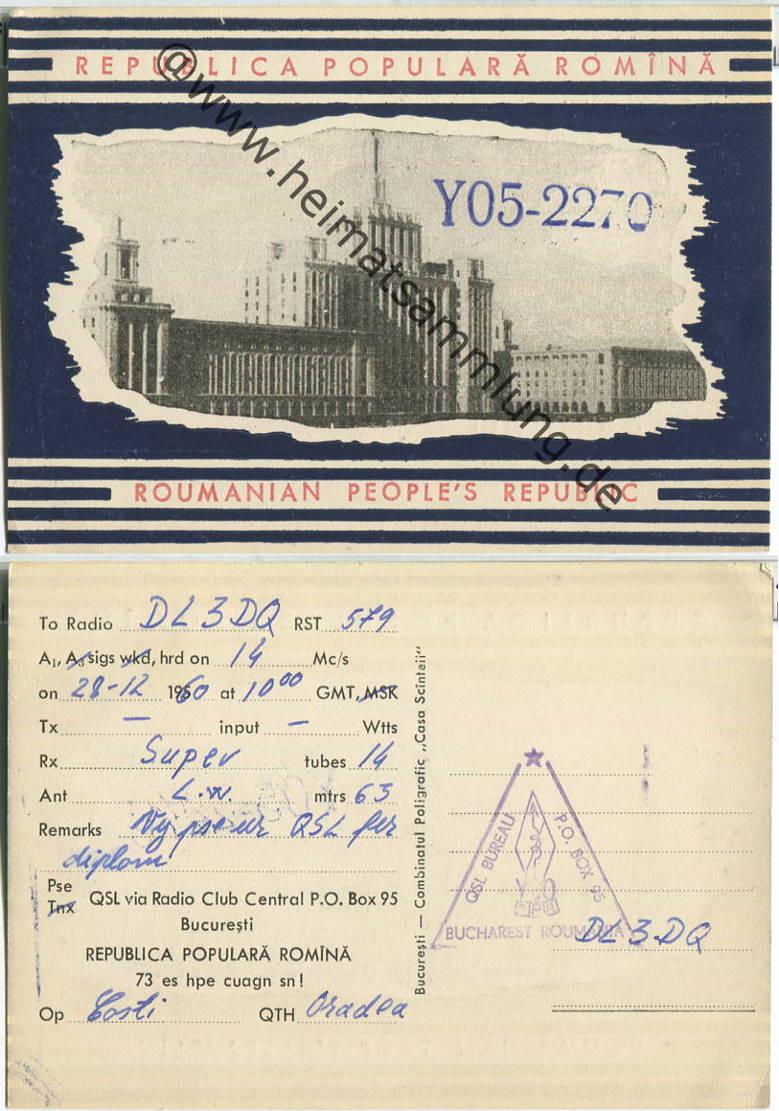 REPUBLICA POPULARĂ ROMÎNĂ
@www.heimatsammlung.de
YO5-2270
ROUMANIAN PEOPLE'S REPUBLIC
To Radio DL3DQ RST 579
A1, A3 sigs wkd, hrd on 14 Mc/s
on 28-12 1960 at 10⁰⁰ GMT, MSK
Tx — input — Wtts
Rx Super tubes 14
Ant L.w. mtrs 63
Remarks pse ur QSL for
diplom
Pse
Tnx QSL via Radio Club Central P.O. Box 95
București
REPUBLICA POPULARĂ ROMÎNĂ
73 es hpe cuagn sn!
Op Costi QTH Oradea
București — Combinatul Poligrafic „Casa Scînteii"
QSL BUREAU
P.O. BOX 95
BUCHAREST ROUMANIA
DL3DQ